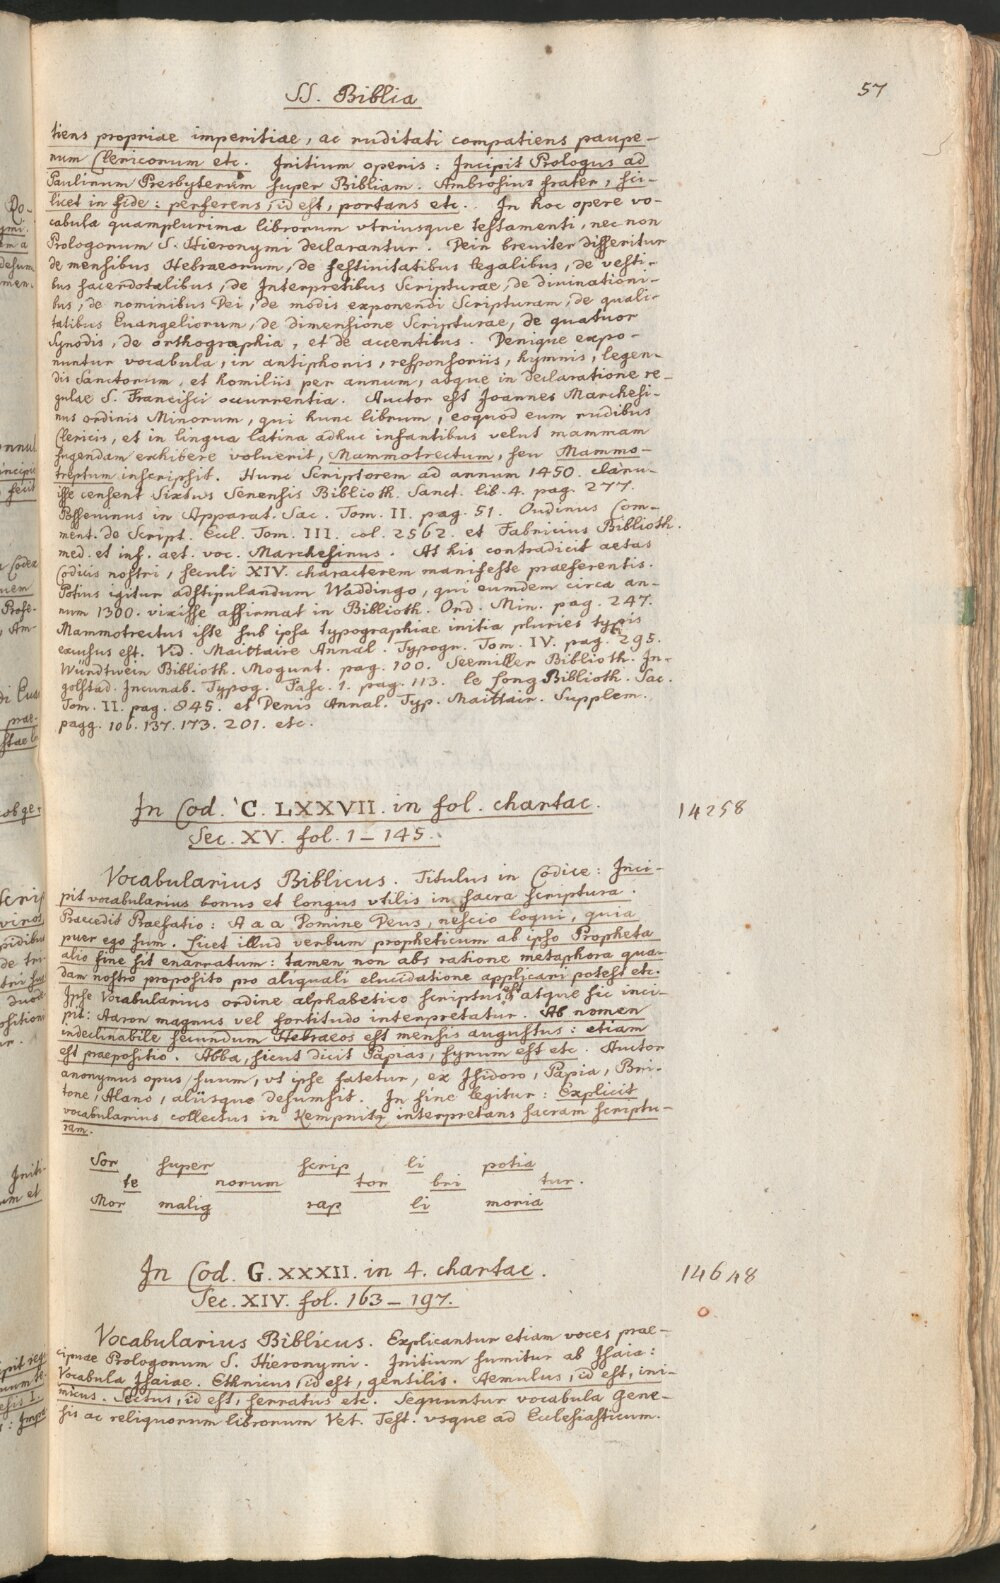 57
SS. Biblia
tiens propriae imperitiae, ac ruditati compatiens paupe-
rum Clericorum etc. Initium operis: Incipit Prologus ad
Paulinum Presbyterum super Bibliam. Ambrosius frater, sci-
licet in fide: perferens, id est, portans etc. In hoc opere vo-
cabula quamplurima librorum vtriusque testamenti, nec non
Prologorum S. Hieronymi declarantur. Dein breviter disseritur
de mensibus Hebraeorum, de festivitatibus legalibus, de vesti-
bus sacerdotalibus, de Interpretibus Scripturae, de divinationi-
bus, de nominibus Dei, de modis exponendi Scripturam, de quali-
tatibus Euangeliorum, de dimensione Scripturae, de quatuor
Synodis, de orthographia, et de accentibus. Denique expo-
nuntur vocabula, in antiphonis, responsoriis, hymnis, legen-
dis Sanctorum, et homiliis per annum, atque in declaratione re-
gulae S. Francisci occurrentia. Auctor est Joannes Marchesi-
nus ordinis Minorum, qui hunc librum, eoquod eum rudibus
Clericis, et in lingua latina adhuc infantibus velut mammam
sugendam exhibere voluerit, Mammotrectum, seu Mammo-
treptum inscripsit. Hunc Scriptorem ad annum 1450. claru-
isse censent Sixtus Senensis Biblioth. Sanct. lib. 4. pag. 277.
Possevinus in Apparat. Sac. Tom. II. pag. 51. Oudinus Com-
ment. de Script. Eccl. Tom. III. col. 2562. et Fabricius Biblioth.
med. et inf. aet. voc. Marchesinus. At his contradicit aetas
Codicis nostri, seculi XIV. characterem manifeste praeferentis.
Potius igitur adstipulandum Waddingo, qui eumdem circa an-
num 1300. vixisse affirmat in Biblioth. Ord. Min. pag. 247.
Mammotrectus iste sub ipsa typographiae initia pluries typis
excusus est. Vid. Maittaire Annal. Typogr. Tom. IV. pag. 295.
Würdtwein Biblioth. Mogunt. pag. 100. Seemiller Biblioth. In-
golstad. Incunab. Typog. Fasc. 1. pag. 113. le Long Biblioth. Sac.
Tom. II. pag. 845. et Denis Annal. Typ. Maittair. Supplem.
pagg. 106. 137. 173. 201. etc.
In Cod. C. LXXVII. in fol. chartac. 14258
Sec. XV. fol. 1–145.
Vocabularius Biblicus. Titulus in Codice: Inci-
pit vocabularius bonus et longus vtilis in sacra scriptura.
Praecedit Praefatio: A a a Domine Deus, nescio loqui, quia
puer ego sum. Licet illud verbum propheticum ab ipso Propheta
alio fine sit enarratum: tamen non abs ratione metaphora qua-
dam nostro proposito pro aliquali elucidatione applicari potest etc.
Ipse Vocabularius ordine alphabetico scriptus est atque sic inci-
pit: Aaron magnus vel fortitudo interpretatur. Ab nomen
indeclinabile secundum Hebraeos est mensis augustus: etiam
est praepositio. Abba, sicut dicit Papias, syrum est etc. Auctor
anonymus opus suum, vt ipse fatetur, ex Isidoro, Papia, Bri-
tone, Alano, aliisque desumsit. In fine legitur: Explicit
vocabularius collectus in Kempnitz interpretans sacram scriptu-
ram.
Sor super scrip li potia
te norum tor bri tur.
Mor malig rap li moria
In Cod. G. XXXII. in 4. chartac. 14648
Sec. XIV. fol. 163–197.
Vocabularius Biblicus. Explicantur etiam voces prae-
cipuae Prologorum S. Hieronymi. Initium sumitur ab Isaia:
Vocabula Isaiae. Ethnicus, id est, gentilis. Aemulus, id est, ini-
micus. Sectus, id est, serratus etc. Sequuntur vocabula Gene-
sis ac reliquorum librorum Vet. Test. vsque ad Ecclesiasticum.